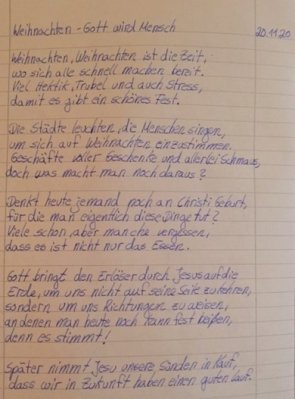 Weihnachten - Gott wird Mensch 20.11.20
Weihnachten, Weihnachten ist die Zeit,
wo sich alle schnell machen bereit.
Viel Hektik, Trubel und auch Stress,
damit es gibt ein schönes Fest.
Die Städte leuchten, die Menschen singen,
um sich auf Weihnachten einzustimmen.
Geschäfte voller Geschenke und allerlei Schmaus,
doch was macht man noch daraus?
Denkt heute jemand noch an Christi Geburt,
für die man eigentlich diese Dinge tut?
Viele schon, aber manche vergessen,
dass es ist nicht nur das Essen.
Gott bringt den Erlöser durch Jesus auf die
Erde, um uns nicht auf seine Seite zu
sondern um uns Richtungen zu weisen,
an denen man heute noch kann fest
denn es stimmt!
Später nimmt Jesu unsere Sünden in Kauf,
dass wir in Zukunft haben einen guten Lauf.